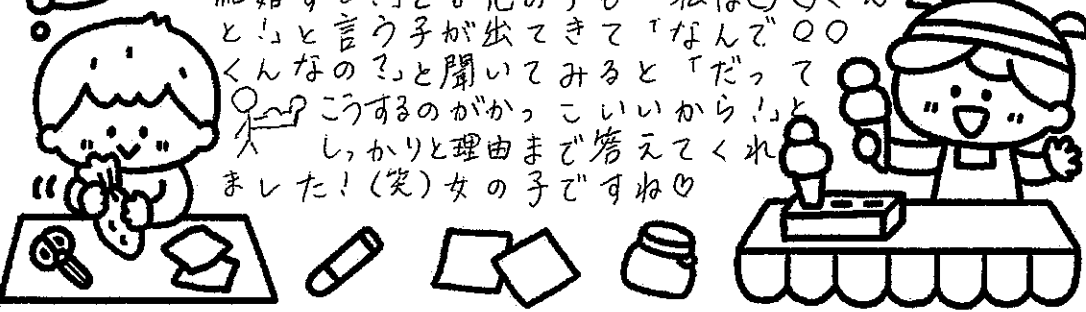 と!」と言う子が出てきて「なんで○○
くんなの?」と聞いてみると「だって
こうするのがかっこいいから!」と
しっかりと理由まで答えてくれ
ました!(笑)女の子ですね♡